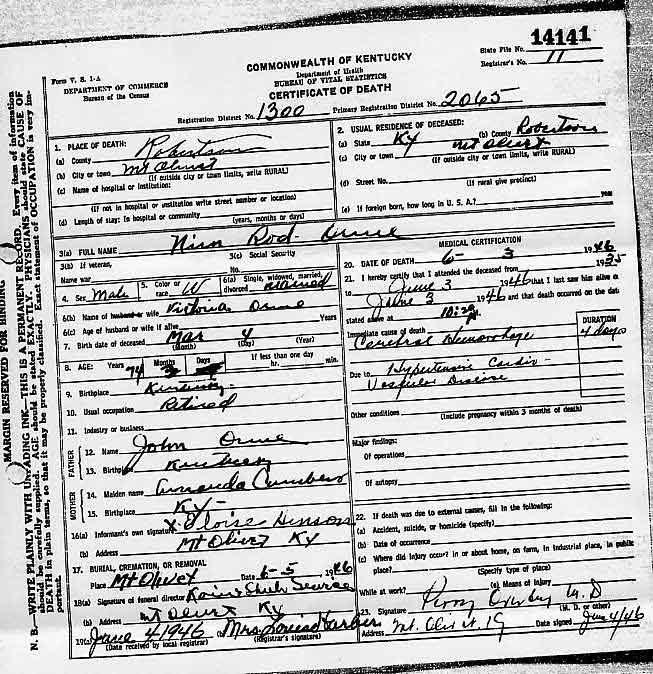 14141
COMMONWEALTH OF KENTUCKY
State File No.
Form V. S. 1-A
Department of Health
Registrar's No. 11
DEPARTMENT OF COMMERCE
BUREAU OF VITAL STATISTICS
Bureau of the Census
CERTIFICATE OF DEATH
Registration District No. 1300 Primary Registration District No. 2065
MARGIN RESERVED FOR BINDING
N. B.—WRITE PLAINLY WITH UNFADING INK—THIS IS A PERMANENT RECORD. Every item of information
should be carefully supplied. AGE should be stated EXACTLY. PHYSICIANS should state CAUSE OF
DEATH in plain terms, so that it may be properly classified. Exact statement of OCCUPATION is very im-
portant.
1. PLACE OF DEATH:
(a) County Robertson
(b) City or town Mt Olivet
(If outside city or town limits, write RURAL)
(c) Name of hospital or institution:
(If not in hospital or institution write street number or location)
(d) Length of stay: In hospital or community
(years, months or days)
2. USUAL RESIDENCE OF DECEASED:
(a) State Ky (b) County Robertson
(c) City or town Mt Olivet
(If outside city or town limits, write RURAL)
(d) Street No.
(If rural give precinct)
(e) If foreign born, how long in U. S. A.? years
3(a) FULL NAME Rod Orme
3(b) If veteran, 3(c) Social Security
Name war No.
4. Sex Male 5. Color or race W 6(a) Single, widowed, married, divorced Married
6(b) Name of husband or wife Victoria Orme
6(c) Age of husband or wife if alive Years
7. Birth date of deceased Mar 4
(Month) (Day) (Year)
8. AGE: Years Months Days If less than one day
74 hr. min.
9. Birthplace Kentucky
10. Usual occupation Retired
11. Industry or business
FATHER
12. Name John Orme
13. Birthplace Kentucky
MOTHER
14. Maiden name Amanda
15. Birthplace Ky-
16(a) Informant's own signature X Eloise Henson
(b) Address Mt Olivet Ky
17. BURIAL, CREMATION, OR REMOVAL
Place Mt Olivet Date 6-5 1946
18(a) Signature of funeral director Service
(b) Address Mt Olivet Ky
19(a) June 4 1946 (b) Mrs. Louise
(Date received by local registrar) (Registrar's signature)
MEDICAL CERTIFICATION
20. DATE OF DEATH 6- 3 1946
21. I hereby certify that I attended the deceased from 1935
to June 3 1946 that I last saw him alive o
June 3 1946 and that death occurred on the dat
stated above at 10:30
DURATION
Immediate cause of death 4 days
Cerebral Hemorrhage
Due to Hypertensive Cardio-
Vascular Disease
Other conditions
(Include pregnancy within 3 months of death)
Major findings:
Of operations
Of autopsy
22. If death was due to external causes, fill in the following:
(a) Accident, suicide, or homicide (specify)
(b) Date of occurrence
(c) Where did injury occur? in or about home, on farm, in industrial place, in public
place?
(Specify type of place)
While at work? (e) Means of injury
23. Signature M. D
(M. D. or other)
Address Mt. Olivet, Ky Date signed June 4/46